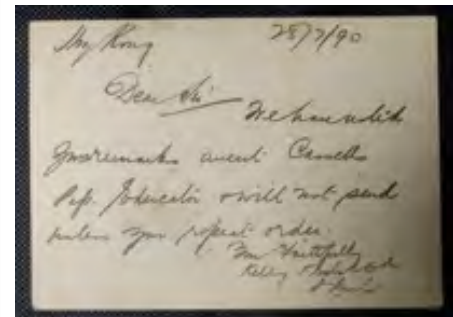 Hong Kong 28/7/90
Dear Sir
We have noted
your remarks anent Cassells
Pop. Educator & will not send
unless you repeat order.
Yours faithfully
Kelly & Walsh Ld